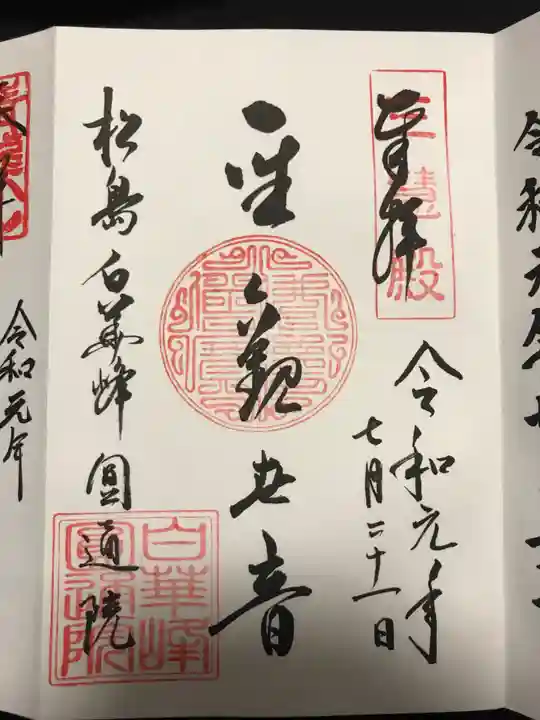 令和元年七
奉拝
三慧殿
令和元年
七月二十一日
聖観世音
松島白華峰圓通院
白華峰
圓通院
令和元年